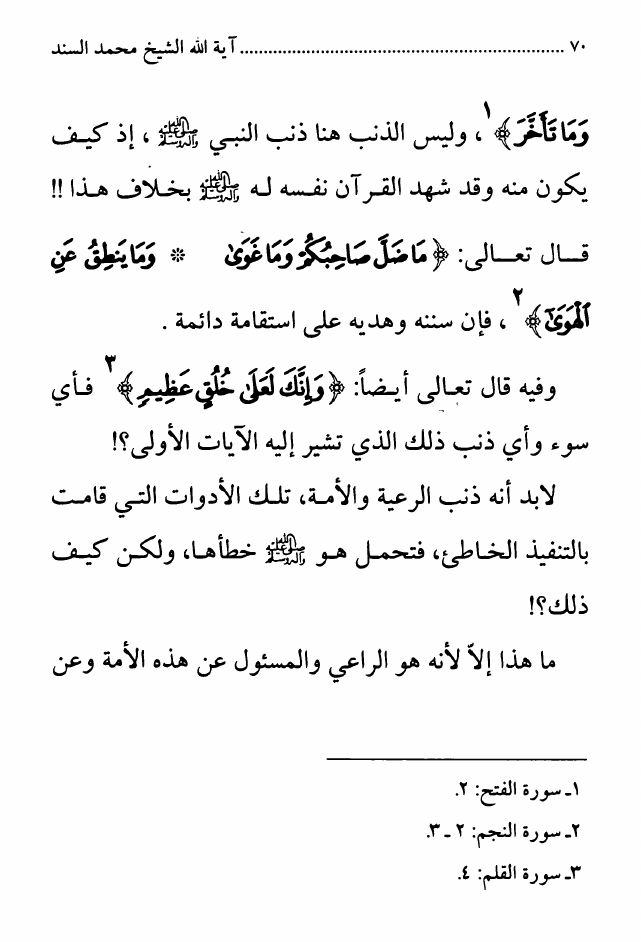 ٧٠ ..................................................................... آية الله الشيخ محمد السند
وَمَا تَأَخَّرَ﴾١ ، وليس الذنب هنا ذنب النبي ﷺ ، إذ كيف
يكون منه وقد شهد القرآن نفسه له ﷺ بخلاف هذا !!
قال تعالى: ﴿مَا ضَلَّ صَاحِبُكُمْ وَمَا غَوَىٰ * وَمَا يَنطِقُ عَنِ
الْهَوَىٰ﴾٢ ، فإن سننه وهديه على استقامة دائمة .
وفيه قال تعالى أيضاً: ﴿وَإِنَّكَ لَعَلَىٰ خُلُقٍ عَظِيمٍ﴾٣ فأي
سوء وأي ذنب ذلك الذي تشير إليه الآيات الأولى؟!
لابد أنه ذنب الرعية والأمة، تلك الأدوات التي قامت
بالتنفيذ الخاطئ، فتحمل هو ﷺ خطأها، ولكن كيف
ذلك؟!
ما هذا إلاّ لأنه هو الراعي والمسئول عن هذه الأمة وعن
١ـ سورة الفتح: ٢.
٢ـ سورة النجم: ٢ ـ ٣.
٣ـ سورة القلم: ٤.